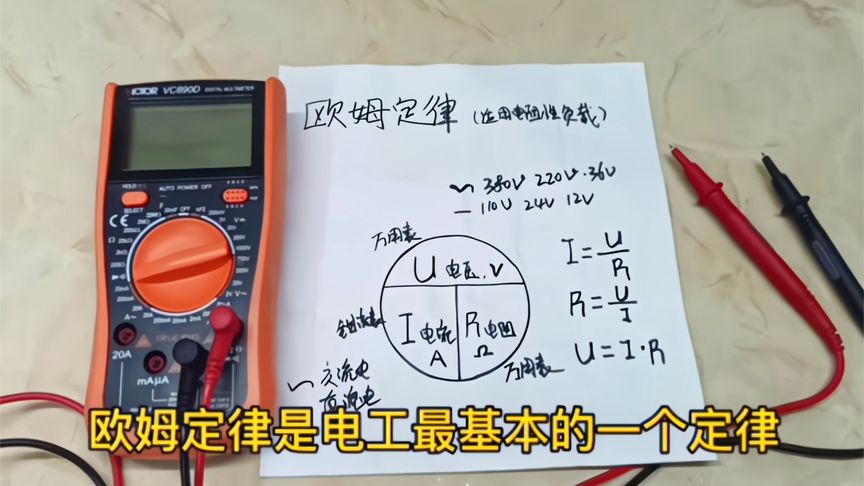 VICTOR VC890D DIGITAL MULTIMETER
AUTO POWER OFF
HOLD
SELECT
20A
mAμA
欧姆定律 (适用电阻性负载)
~ 380V 220V·36V
— 110V 24V 12V
万用表
U 电压.V
I 电流 A
R 电阻 Ω
钳流表
万用表
I=U/R
R=U/I
U=I·R
~ 交流电
直流电
欧姆定律是电工最基本的一个定律